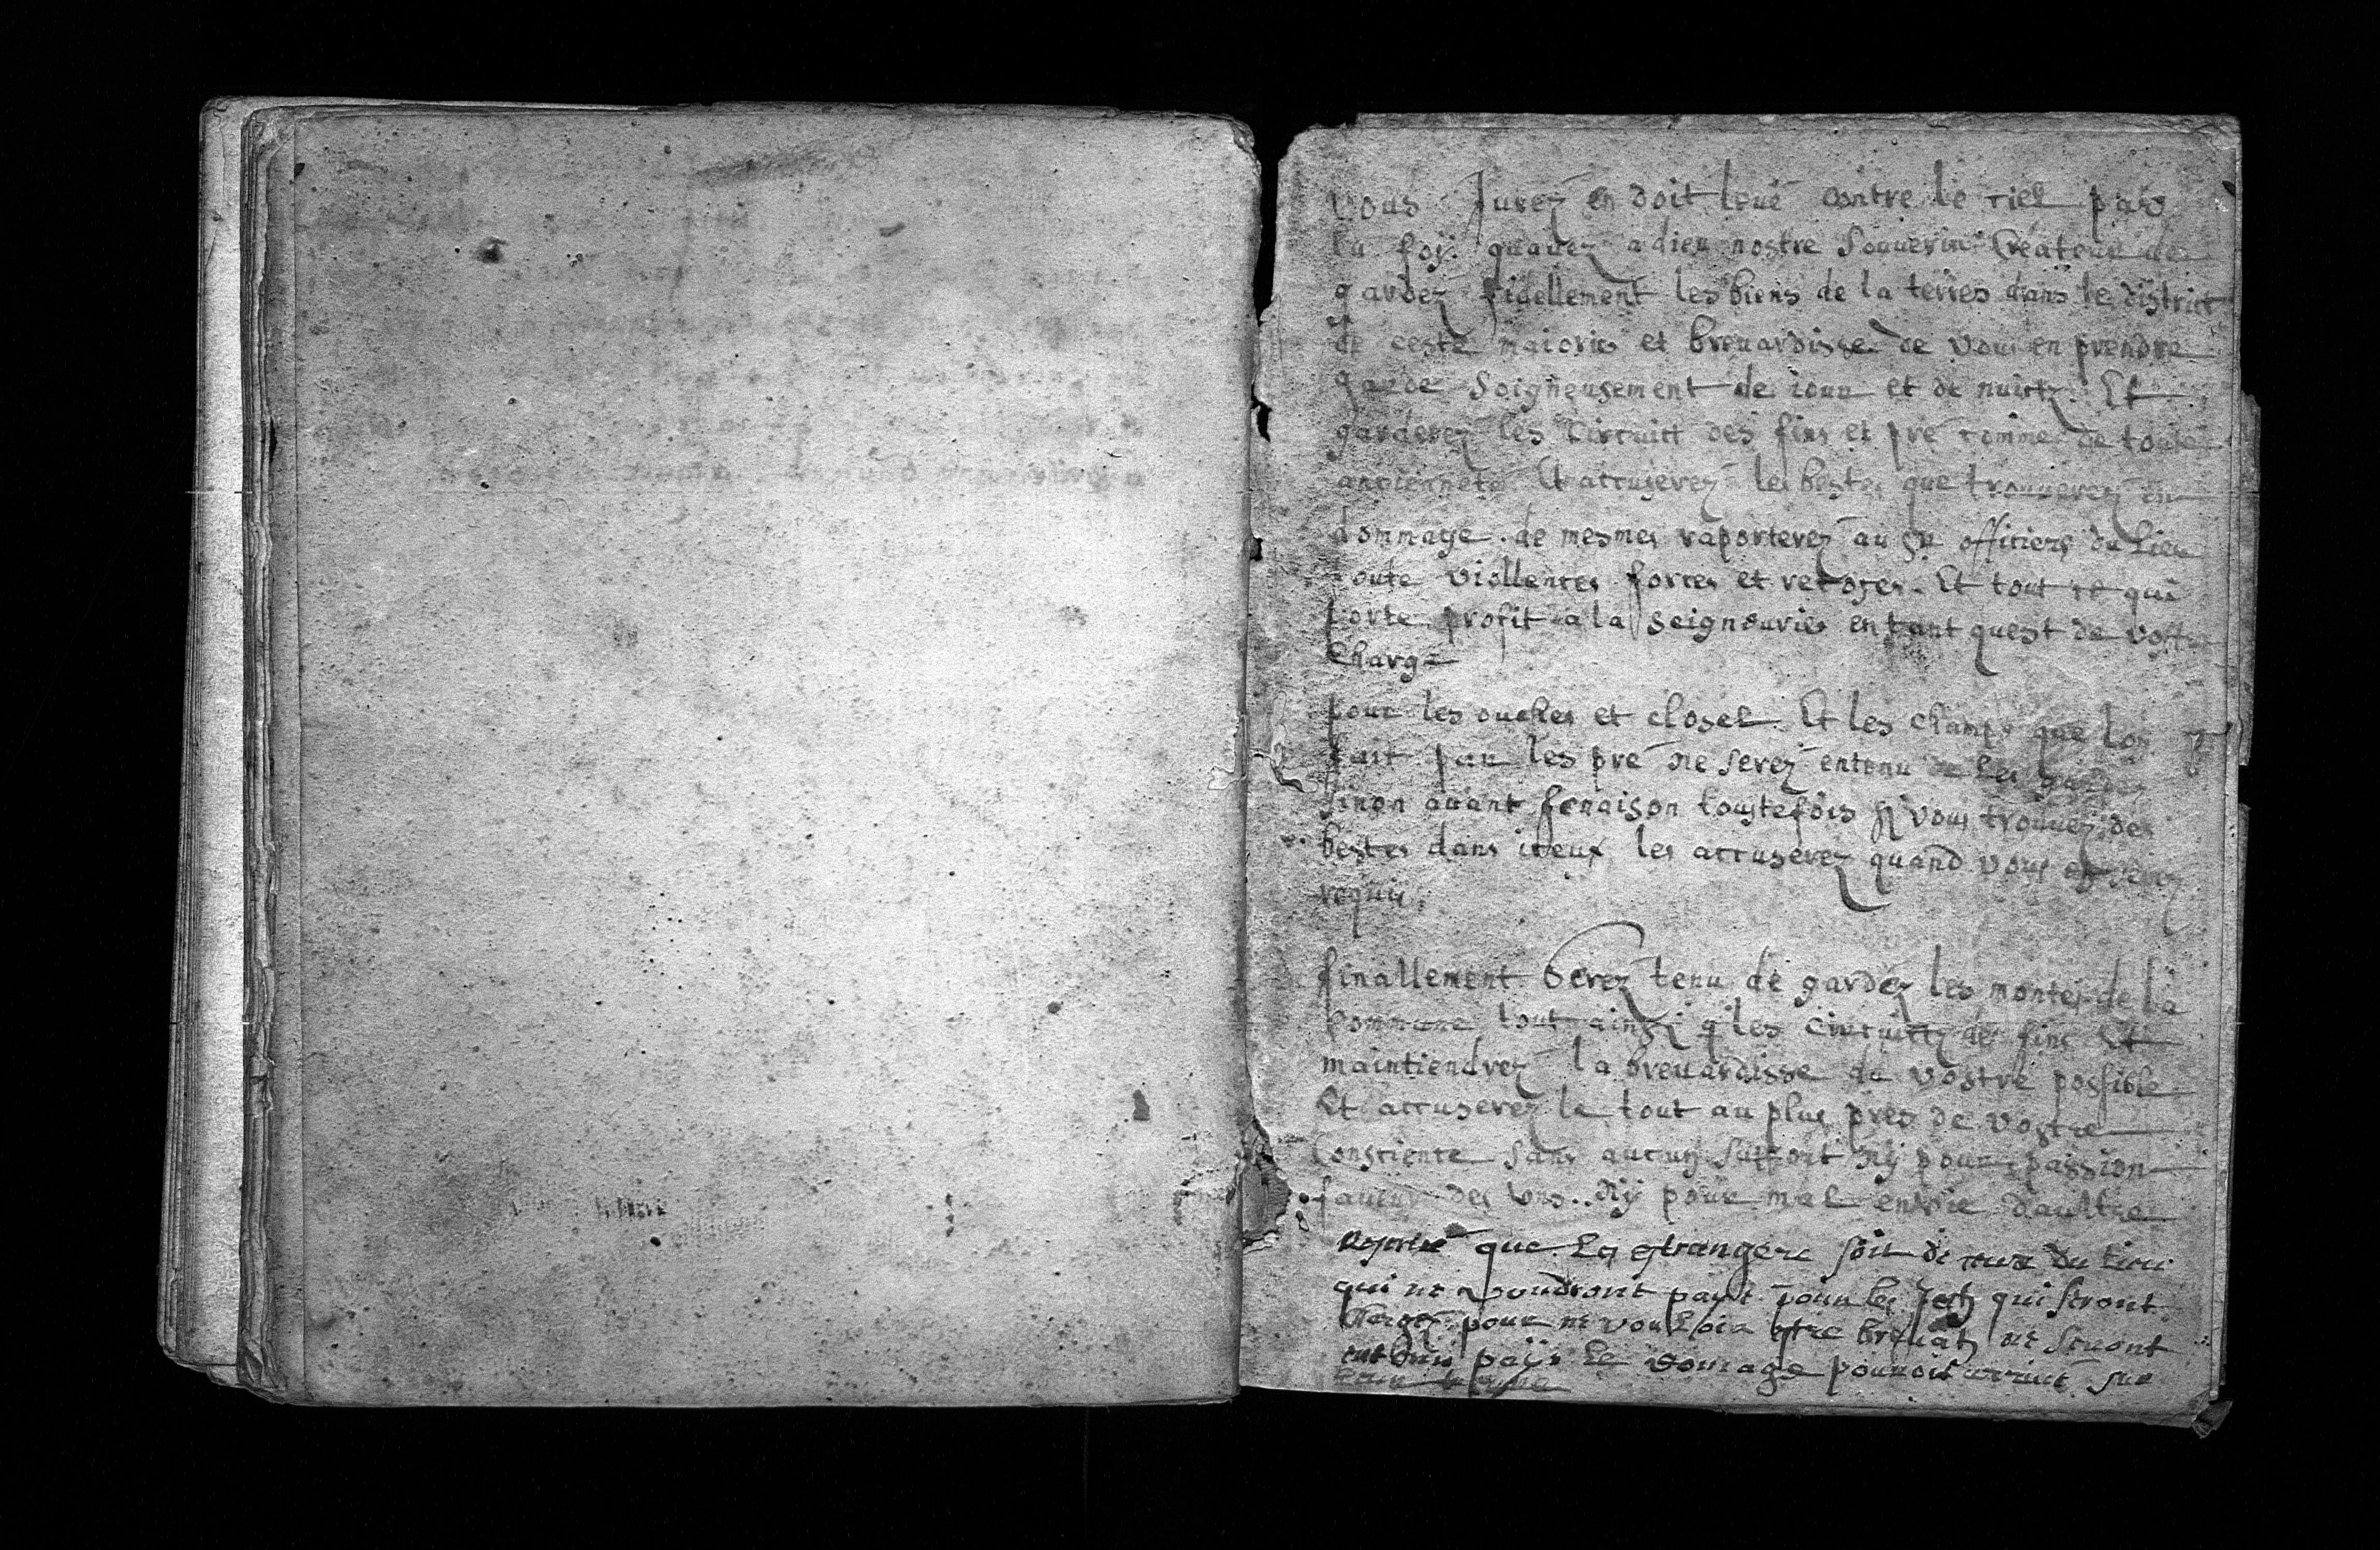 Vous Jurez en doit leué contre le ciel par
la foÿ quauez a dieu nostre souuerin Createur de
gardez fidellement les biens de la terres dans le district
de ceste maiorie et breuardisse de vous en prendre
garde Soigneusement de iour et de nuictz. Et
garderez les Circuitt des fins et pré comme de toute
ancienneté Et accuserez les bestes que trouuerez en
dommage. de mesmes raporterez au Sr officiers du Lieu
toute viollences forces et
 Et tout ce qui
porte profit a la seignourie entant quest de vostre
Charge
pour les ouches et closel Et les champs que lon
fait par les pré ne serez entenu de les garder
sinon auant fenaison toustefois sy vous trouuez des
bestes dans iceux les accuserez quand vous en serez
requis.
finallement Serez tenu de gardez les montes de la
commune tout ainsi q les Circuittz des fins Et
maintiendrez la breuardisse du vostre possible
Et accuserez le tout au plus pres de vostre
Conscience sans aucun suport nÿ pour passion
faueur des Vns. nÿ pour mal enuie daultre
que Les estrangere soit de ceux du Lieu
qui ne voudront paÿe pour les qui seront
pour ne vouloir estre ne seront
paÿe Le domage pouuoit arriué sur